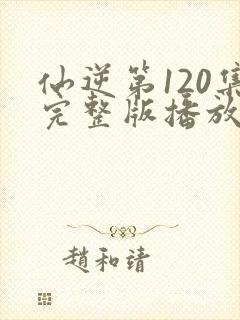 仙逆第120集
完整版播放
趙和靖